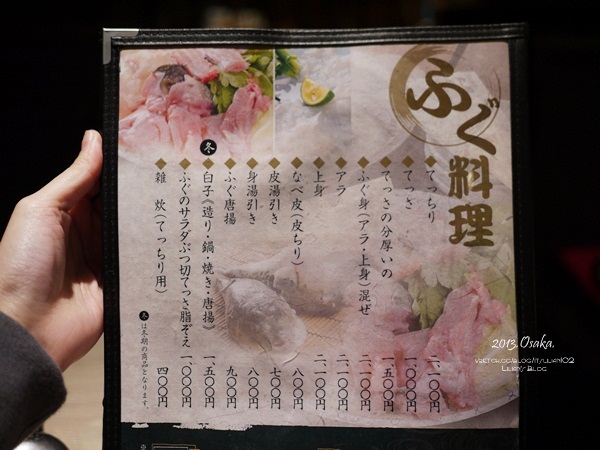 ふぐ料理
てっちり 二、一〇〇円
てっさ 一、〇〇〇円
てっさの分厚いの 一、五〇〇円
ふぐ身(アラ・上身)混ぜ 二、一〇〇円
アラ 二、一〇〇円
上身 二、一〇〇円
なべ皮(皮ちり) 八〇〇円
皮湯引き 七〇〇円
身湯引き 八〇〇円
ふぐ唐揚 九〇〇円
冬 白子《造り・鍋・焼き・唐揚》 一、五〇〇円
ふぐのサラダぶつ切てっさ脂ぞえ 一、〇〇〇円
雑炊(てっちり用) 四〇〇円
冬は冬期の商品となります。
2013.Osaka.
Lilian's Blog